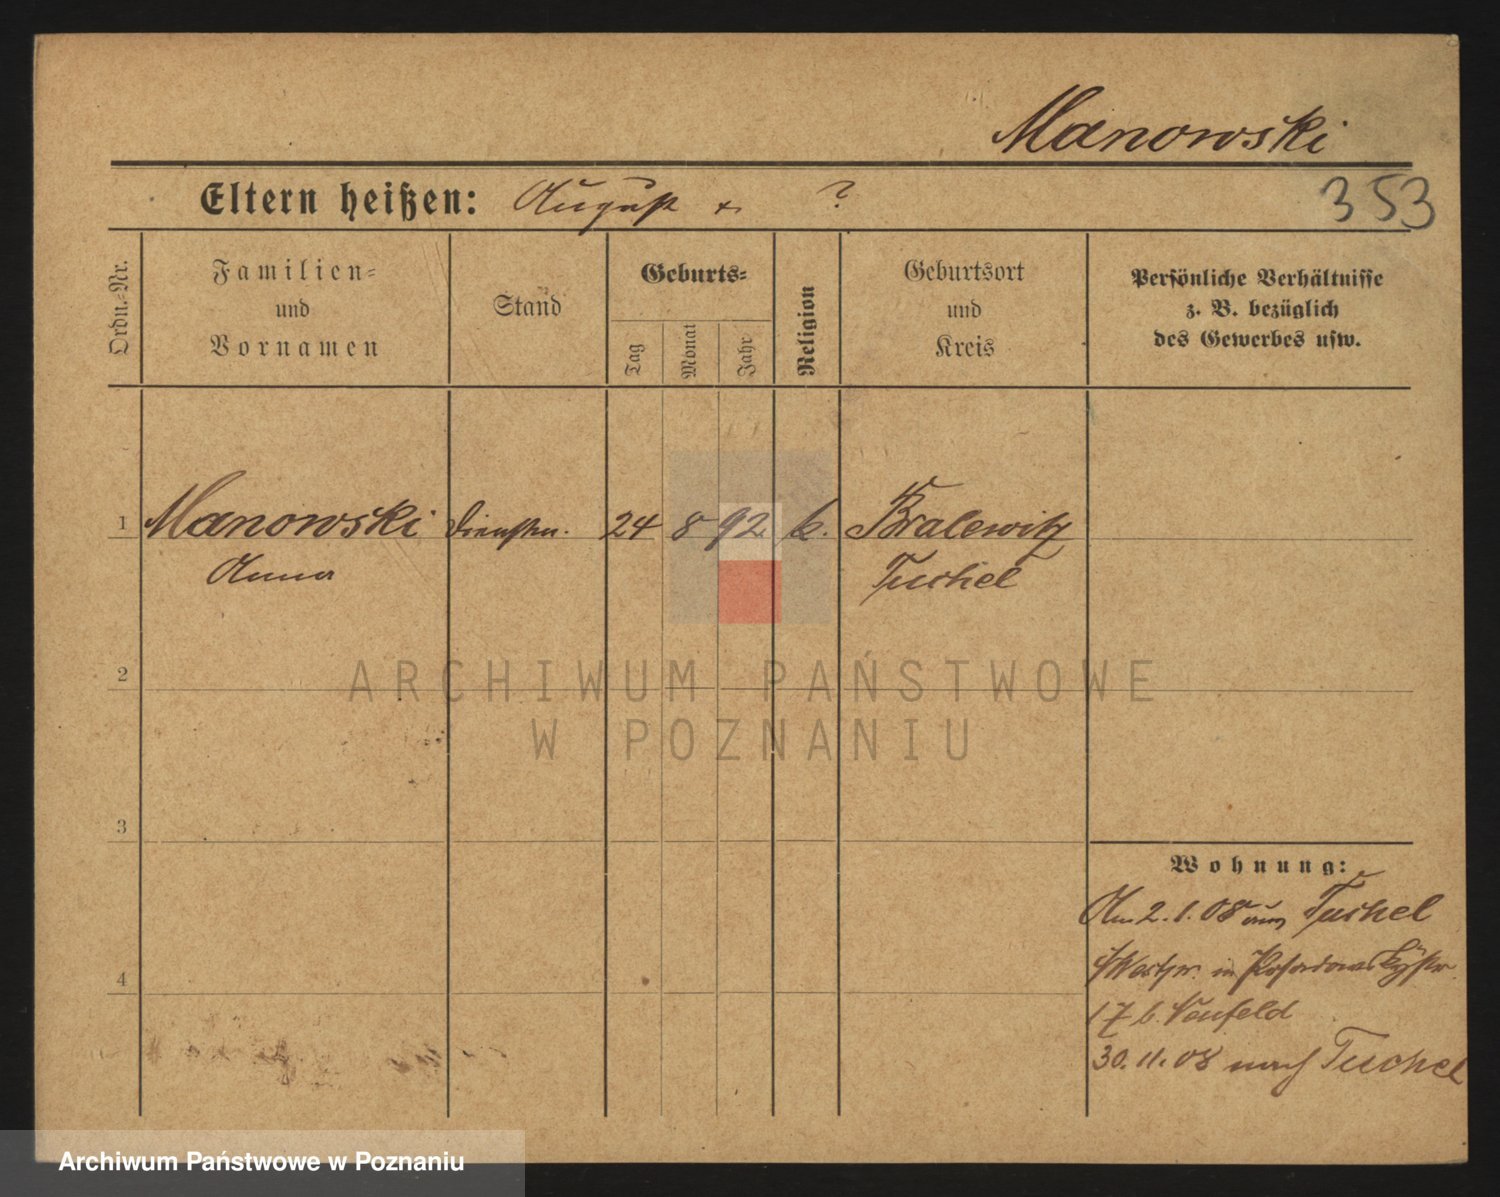 Manowski
Eltern heißen: August + ?
353
Ordn.-Nr.
Familien-
und
Vornamen
Stand
Geburts-
Tag
Monat
Jahr
Religion
Geburtsort
und
Kreis
Persönliche Verhältnisse
z. B. bezüglich
des Gewerbes usw.
1 Manowski Dienstm. 24 8 92 k. Bralewitz
Anna Tuchel
2
ARCHIWUM PAŃSTWOWE
W POZNANIU
3
Wohnung:
Am 2.1.08 aus Tuchel
i/Westpr. in Posadowskystr.
4
17 b. Neufeld
30.11.08 nach Tuchel
Archiwum Państwowe w Poznaniu